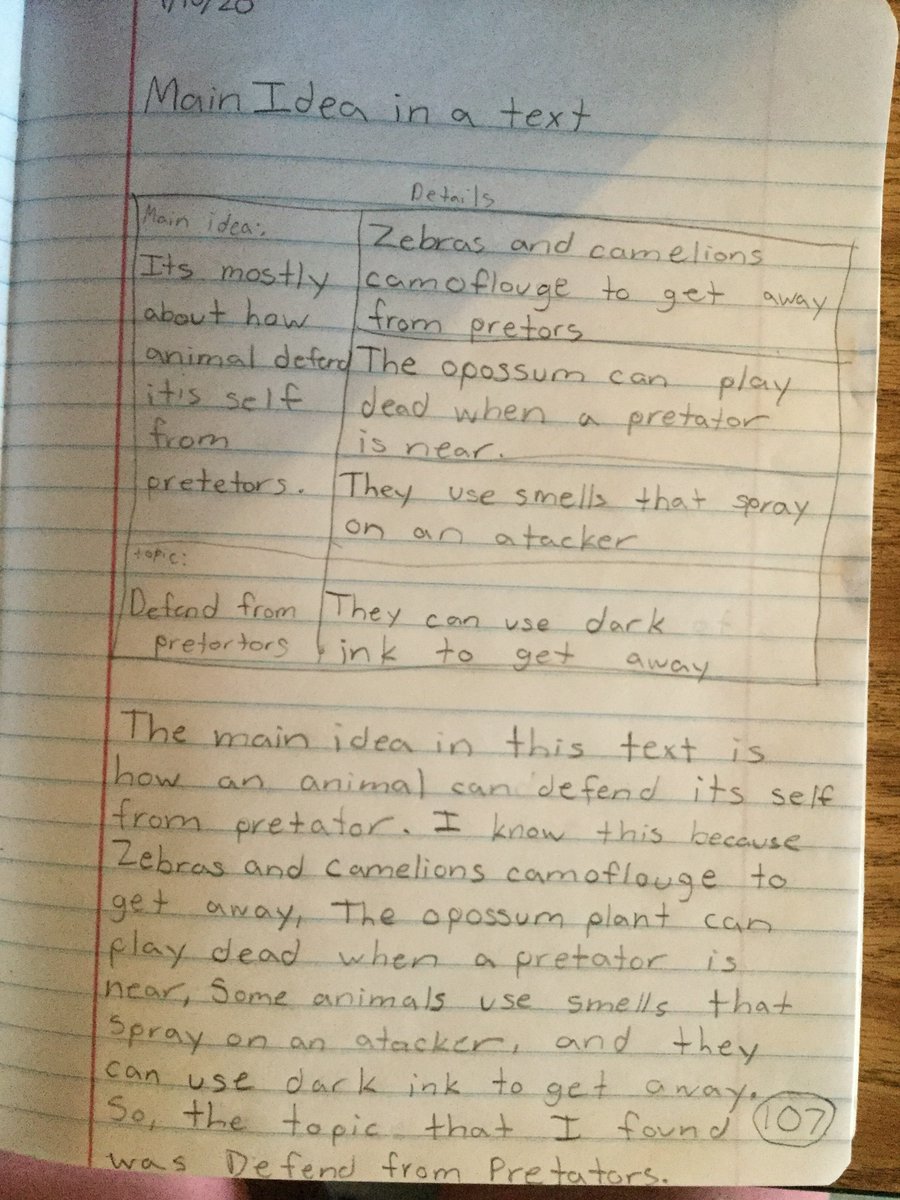 Main Idea in a text
Details
Main idea:
Its mostly
about how
animal defend
it's self
from
pretetors.
Zebras and camelions
camoflouge to get away
from pretors
The opossum can play
dead when a pretator
is near.
They use smells that spray
on an atacker
topic:
Defend from
pretortors
They can use dark
ink to get away
The main idea in this text is
how an animal can defend its self
from pretator. I know this because
Zebras and camelions camoflouge to
get away, The opossum plant can
play dead when a pretator is
near, Some animals use smells that
spray on an atacker, and they
can use dark ink to get away.
So, the topic that I found
was Defend from Pretators.
107